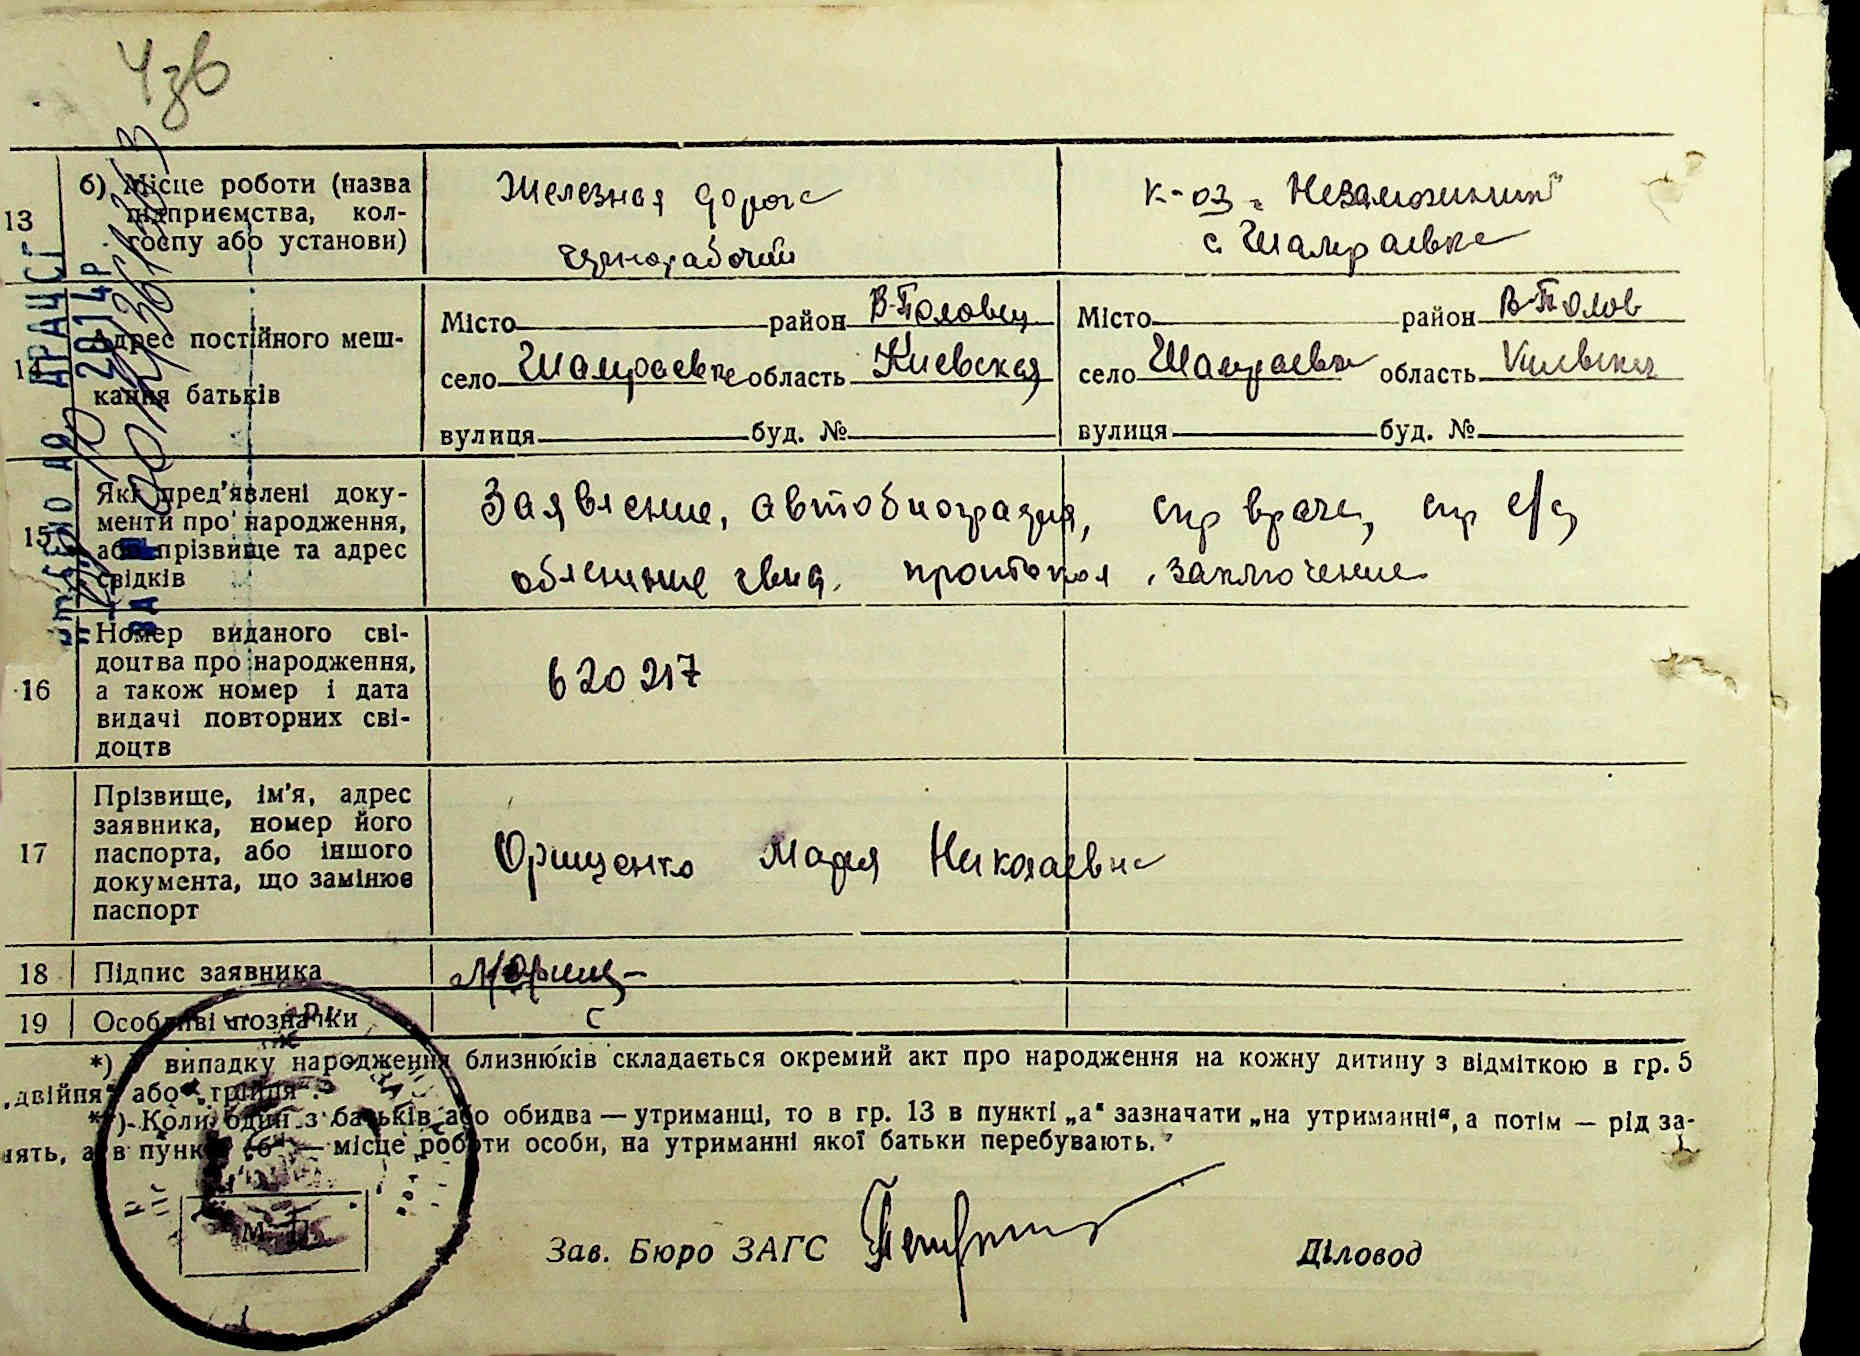 13
б) Місце роботи (назва
підприємства, кол-
госпу або установи)
Железная дорога
чернорабочий
к-оз „Незаможник"
с. Шамраевка
14
Адрес постійного меш-
кання батьків
Місто район В-Половец
село Шамраевка область Киевская
вулиця буд. №
Місто район В-Полов
село Шамраевка область Киевская
вулиця буд. №
15
Які пред'явлені доку-
менти про народження,
або прізвище та адрес
свідків
Заявление, автобиография, спр врача, спр с/с,
протокол, заключение
16
Номер виданого сві-
доцтва про народження,
а також номер і дата
видачі повторних сві-
доцтв
620217
17
Прізвище, ім'я, адрес
заявника, номер його
паспорта, або іншого
документа, що замінює
паспорт
Орищенко Мария Николаевна
18
Підпис заявника
19
Особливі позначки
*) У випадку народження близнюків складається окремий акт про народження на кожну дитину з відміткою в гр. 5
„двійня" або „трійня".
**) Коли один з батьків або обидва — утриманці, то в гр. 13 в пункті „а" зазначати „на утриманні", а потім — рід за-
нять, а в пункті „б" — місце роботи особи, на утриманні якої батьки перебувають.
М. П.
Зав. Бюро ЗАГС
Діловод
ДРАЦСГ
2014р